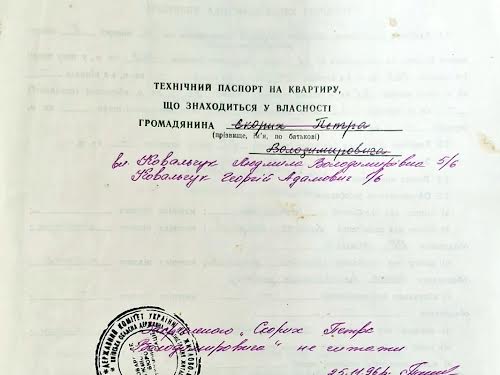 ТЕХНІЧНИЙ ПАСПОРТ НА КВАРТИРУ,
ЩО ЗНАХОДИТЬСЯ У ВЛАСНОСТІ
ГРОМАДЯНИНА Скорих Петра
(прізвище, ім'я, по батькові)
Володимировича
вл. Ковальчук Людмила Володимирівна 5/6
Ковальчук Георгій Адамович 1/6
"Скорих Петра
Володимировича" не читати
25.11.96г.
ДЕРЖАВНИЙ КОМІТЕТ УКРАЇНИ